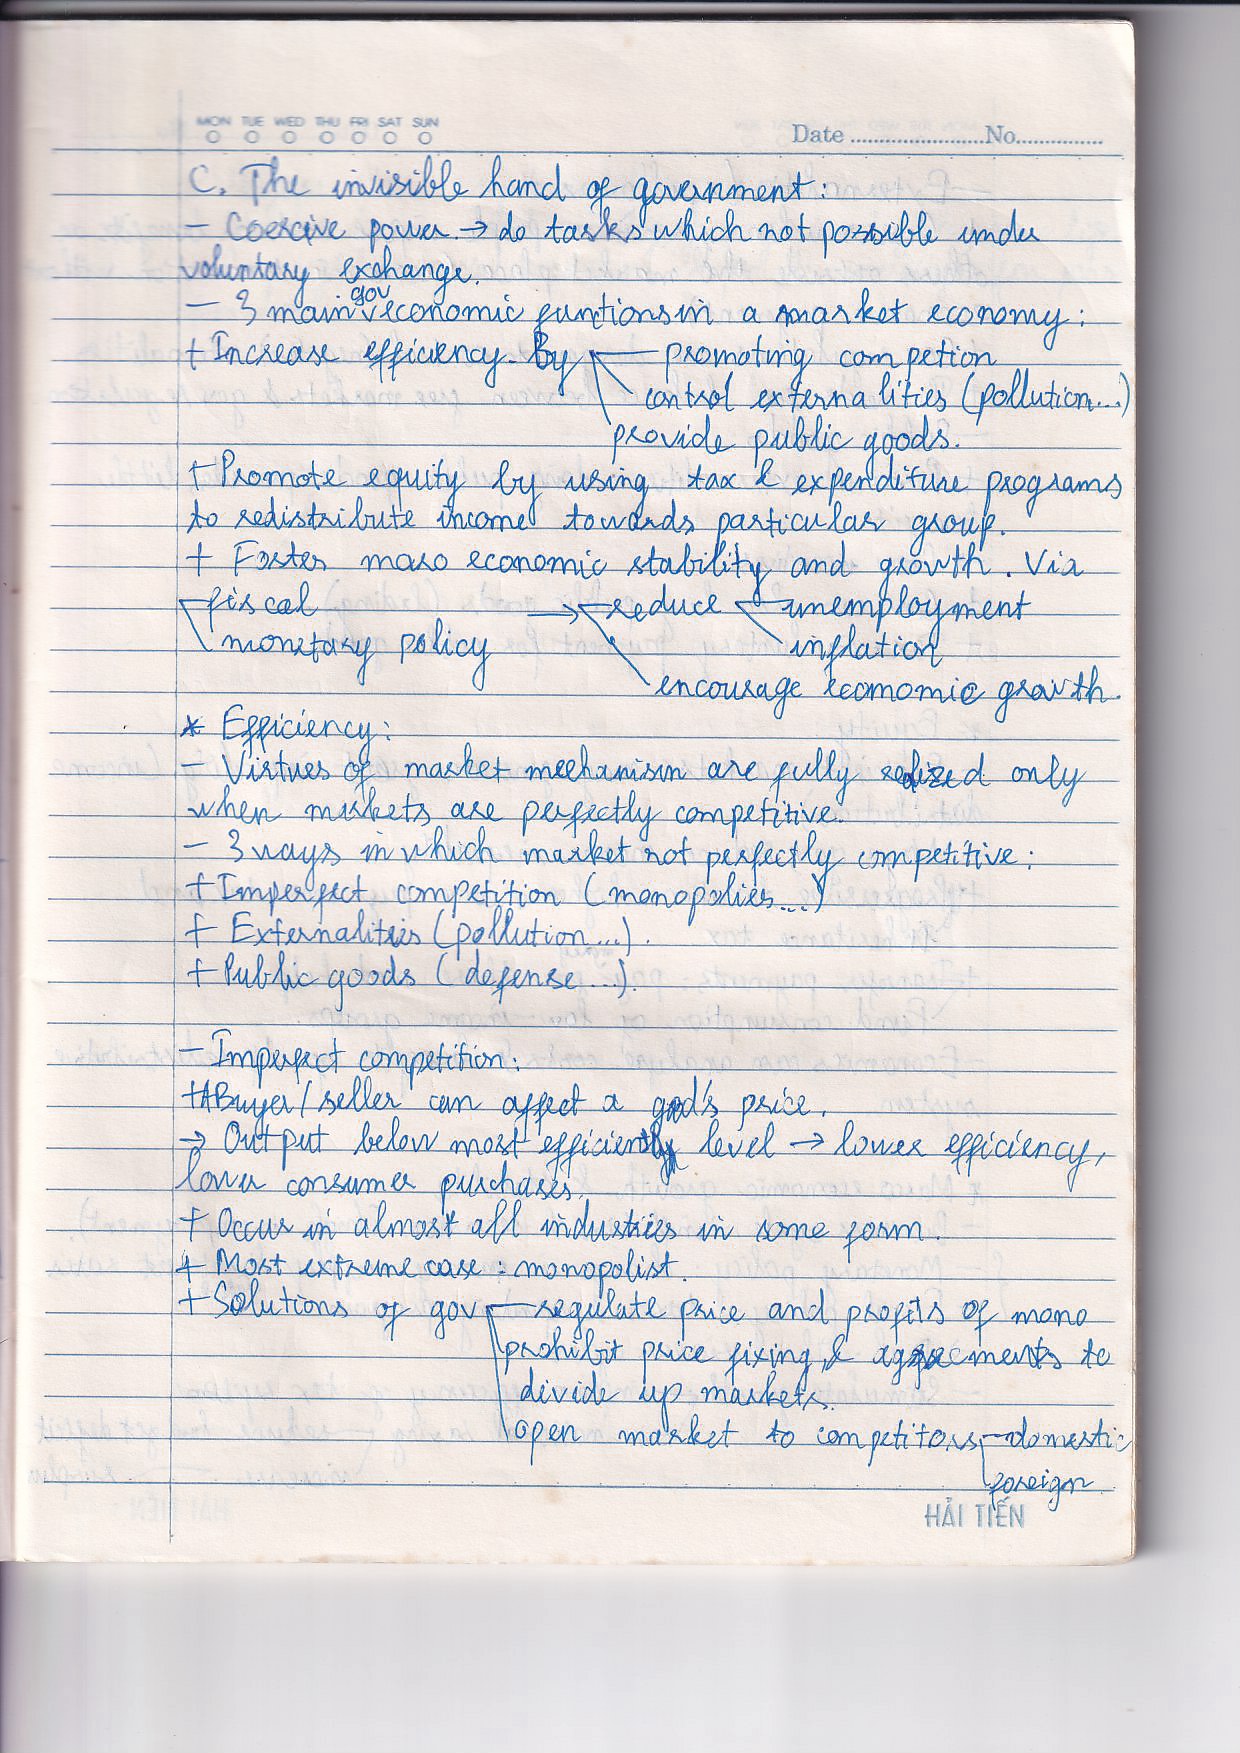 MON TUE WED THU FRI SAT SUN
Date ........................No................
C. The invisible hand of government:
- Coercive power → do tasks which not possible under
voluntary exchange.
- 3 main gov economic functions in a market economy:
+ Increase efficiency. By promoting competion
control externalities (pollution...)
provide public goods.
+ Promote equity by using tax & expenditure programs
to redistribute income towards particular group.
+ Foster maro economic stability and growth. Via
fiscal → reduce unemployment
monetary policy inflation
encourage economic growth.
* Efficiency:
- Virtues of market mechanism are fully realized only
when markets are perfectly competitive.
- 3 ways in which market not perfectly competitive:
+ Imperfect competition (monopolies...)
+ Externalities (pollution...).
+ Public goods (defense...).
- Imperfect competition:
+ A Buyer/seller can affect a good's price.
→ Output below most efficient level → lower efficiency,
lower consumer purchases.
+ Occur in almost all industries in some form.
+ Most extreme case: monopolist.
+ Solutions of gov regulate price and profits of mono
prohibit price fixing, & agreements to
divide up markets.
open market to competitors domestic
foreign
HẢI TIẾN